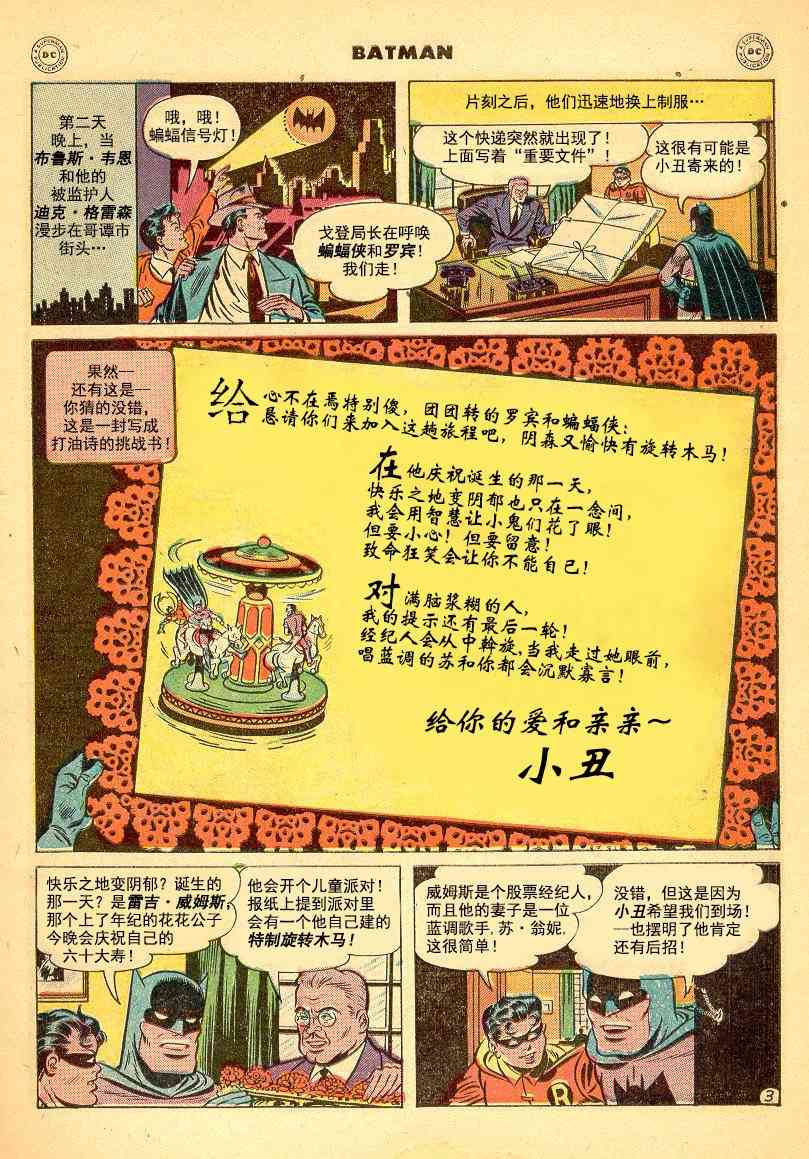 BATMAN
A SUPERMAN
DC
PUBLICATION
A SUPERMAN
DC
PUBLICATION
第二天
晚上，当
布鲁斯·韦恩
和他的
被监护人
迪克·格雷森
漫步在哥谭市
街头…
哦，哦！
蝙蝠信号灯！
戈登局长在呼唤
蝙蝠侠和罗宾！
我们走！
片刻之后，他们迅速地换上制服…
这个快递突然就出现了！
上面写着“重要文件”！
这很有可能是
小丑寄来的！
果然——
还有这是——
你猜的没错，
这是一封写成
打油诗的挑战书！
给心不在焉特别傻，团团转的罗宾和蝙蝠侠：
恳请你们来加入这趟旅程吧，阴森又愉快有旋转木马！
在他庆祝诞生的那一天，
快乐之地变阴郁也只在一念间，
我会用智慧让小鬼们花了眼！
但要小心！但要留意！
致命狂笑会让你不能自已！
对满脑浆糊的人，
我的提示还有最后一轮！
经纪人会从中斡旋，当我走过她眼前，
唱蓝调的苏和你都会沉默寡言！
给你的爱和亲亲～
小丑
快乐之地变阴郁？诞生的
那一天？是雷吉·威姆斯，
那个上了年纪的花花公子
今晚会庆祝自己的
六十大寿！
他会开个儿童派对！
报纸上提到派对里
会有一个他自己建的
特制旋转木马！
威姆斯是个股票经纪人，
而且他的妻子是一位
蓝调歌手，苏·翁妮，
这很简单！
没错，但这是因为
小丑希望我们到场！
—也摆明了他肯定
还有后招！
R
3